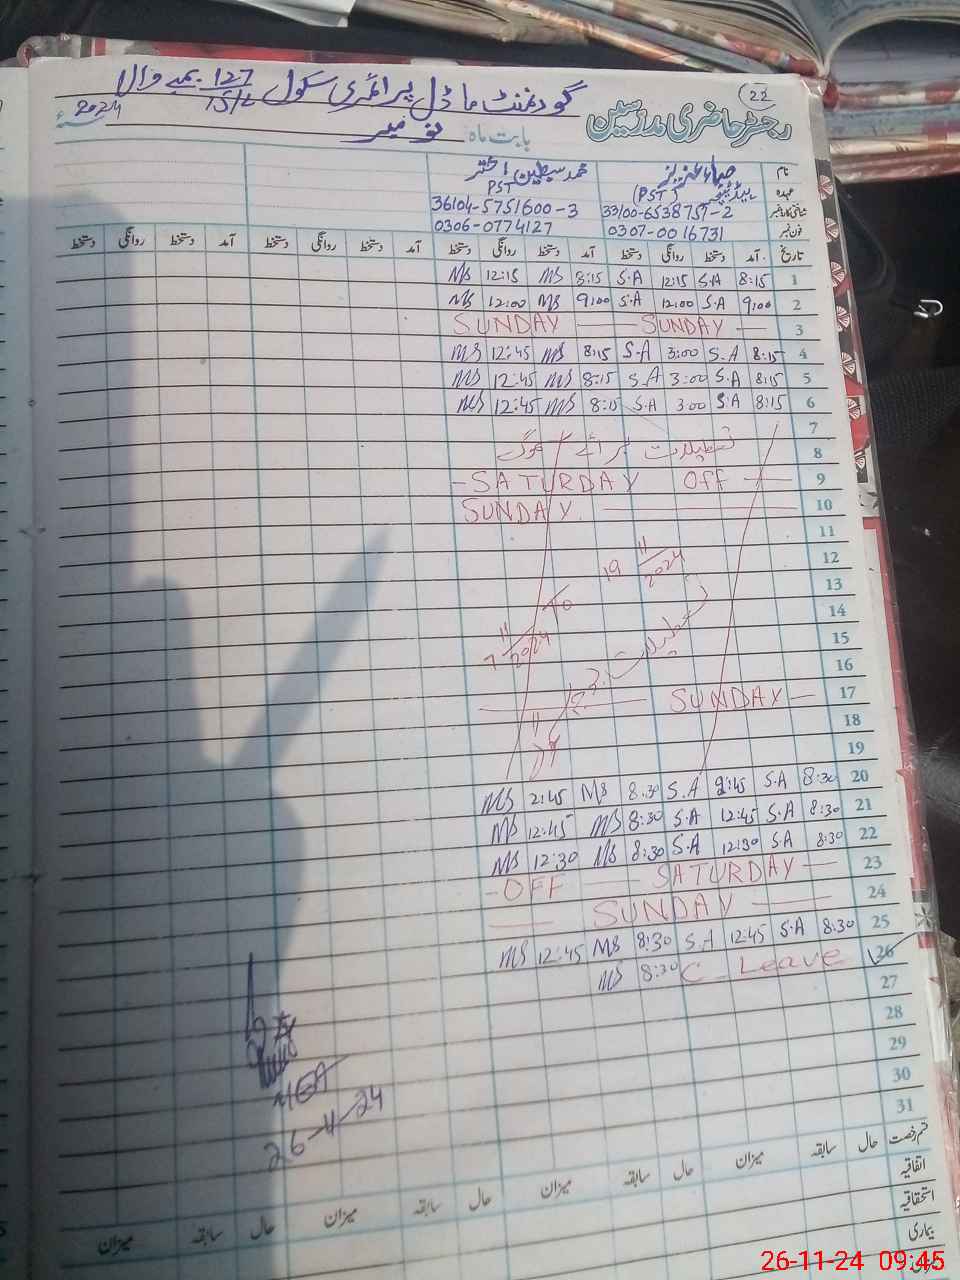 22
رجسٹر حاضری مدرسین گورنمنٹ ماڈل پرائمری سکول 127/15/L
بابت ماہ نومبر 2024ء
نام محمد سبطین اختر
عہدہ (PST) PST
شناختی کارڈ نمبر 33100-6538757-2 36104-5751600-3
فون نمبر 0307-0016731 0306-0774127
تاریخ آمد دستخط روانگی دستخط آمد دستخط روانگی دستخط آمد دستخط روانگی دستخط آمد دستخط روانگی دستخط
1 8:15 S.A 12:15 S.A 8:15 MS 12:15 MS
2 9:00 S.A 12:00 S.A 9:00 MS 12:00 MS
3 SUNDAY SUNDAY
4 8:15 S.A 3:00 S.A 8:15 MS 12:45 MS
5 8:15 S.A 3:00 S.A 8:15 MS 12:45 MS
6 8:15 S.A 3:00 S.A 8:15 MS 12:45 MS
7
8 تعطیلات برائے سموگ
9 SATURDAY Off
10 SUNDAY
11
12 19 11 2024
13 To
14 7 11 2024
15 تعطیلات
16
17 SUNDAY
18
19
20 8:30 S.A 2:45 S.A 8:30 MS 2:45 MS
21 8:30 S.A 12:45 S.A 8:30 MS 12:45 MS
22 8:30 S.A 12:30 S.A 8:30 MS 12:30 MS
23 OFF SATURDAY
24 SUNDAY
25 8:30 S.A 12:45 S.A 8:30 MS 12:45 MS
26 C Leave 8:30 MS
27
28
29
30
31
MEA
26-11-24
قسم رخصت حال سابقہ میزان حال سابقہ میزان حال سابقہ میزان حال سابقہ میزان
اتفاقیہ
استحقاقیہ
بیماری
26-11-24 09:45